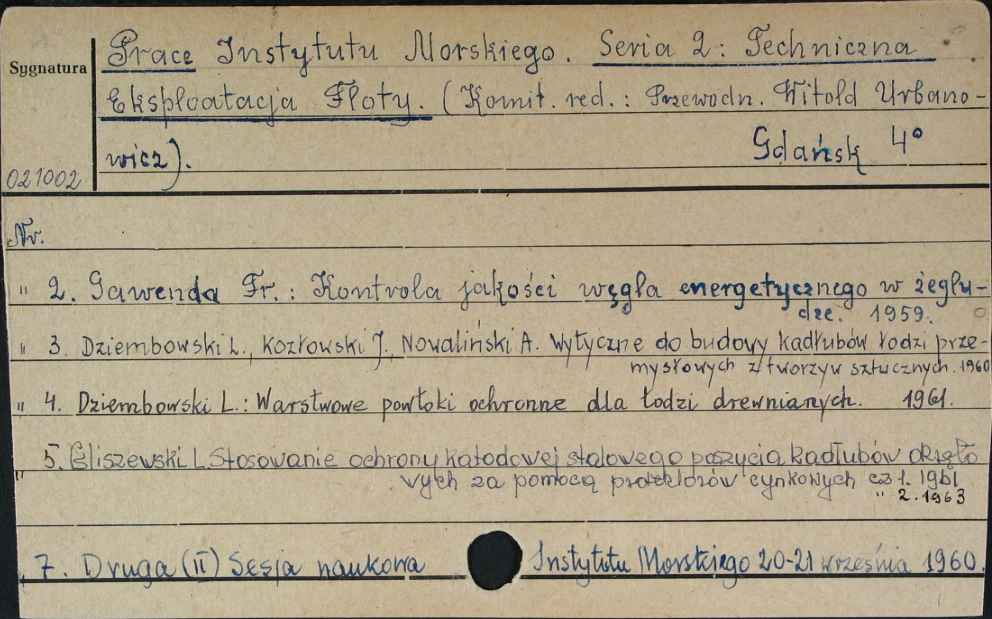 Prace Instytutu Morskiego. Seria 2: Techniczna
Sygnatura
Eksploatacja Floty. (Komit. red.: Przewodn. Witold Urbano-
wicz). Gdańsk 4°
021002
Nr.
" 2. Gawenda Fr.: Kontrola jakości węgla energetycznego w żeglu-
dze. 1959.
" 3. Dziembowski L., Kozłowski J., Nowaliński A. Wytyczne do budowy kadłubów łodzi prze-
mysłowych z tworzyw sztucznych. 1960
" 4. Dziembowski L.: Warstwowe powłoki ochronne dla łodzi drewnianych. 1961.
" 5. Gliszewski L. Stosowanie ochrony katodowej stalowego poszycia kadłubów okręto
wych za pomocą protektorów cynkowych cz 1. 1961
" 2. 1963
7. Druga (II) Sesja naukowa Instytutu Morskiego 20-21 września 1960.